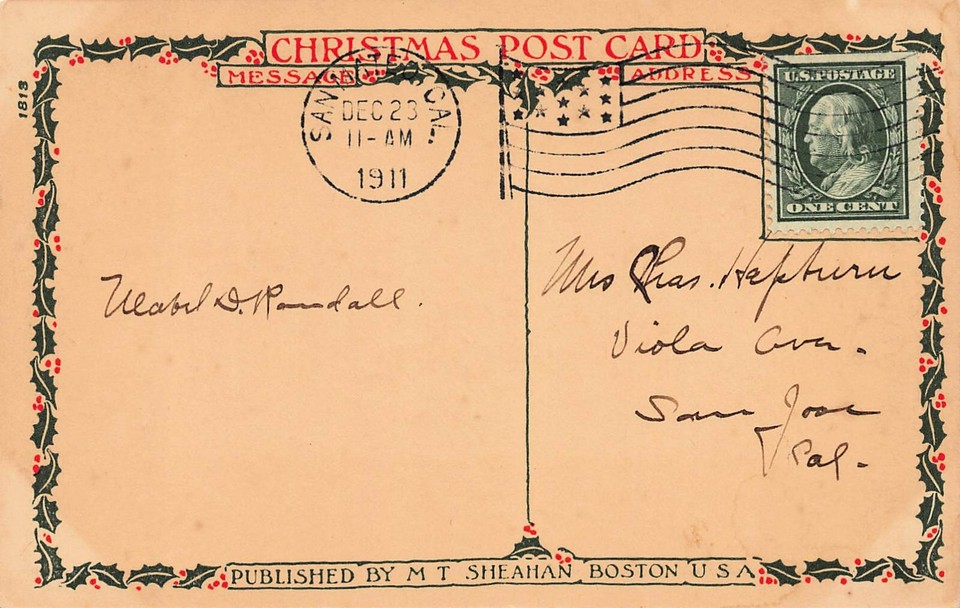 CHRISTMAS POST CARD
MESSAGE
ADDRESS
1813
CAL.
DEC 23
11-AM
1911
U.S. POSTAGE
ONE CENT
Mabel D. Randall.
Mrs Chas. Hepburn
Viola Ave.
San Jose
Cal.
PUBLISHED BY M T SHEAHAN BOSTON U S A